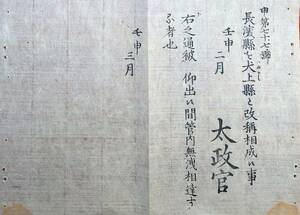 申第七十七號
長濱縣ヲ犬上縣と改稱相成候事
壬申二月
太政官
右之通被 仰出候間管内無洩相達す
る者也
壬申
三月